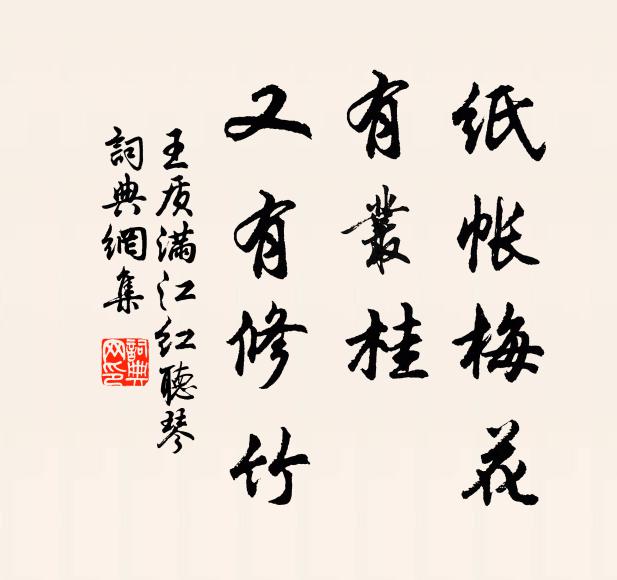 紙帳梅花
有叢桂
又有修竹
王质满江红聽琴
詞典網集
詞典网印